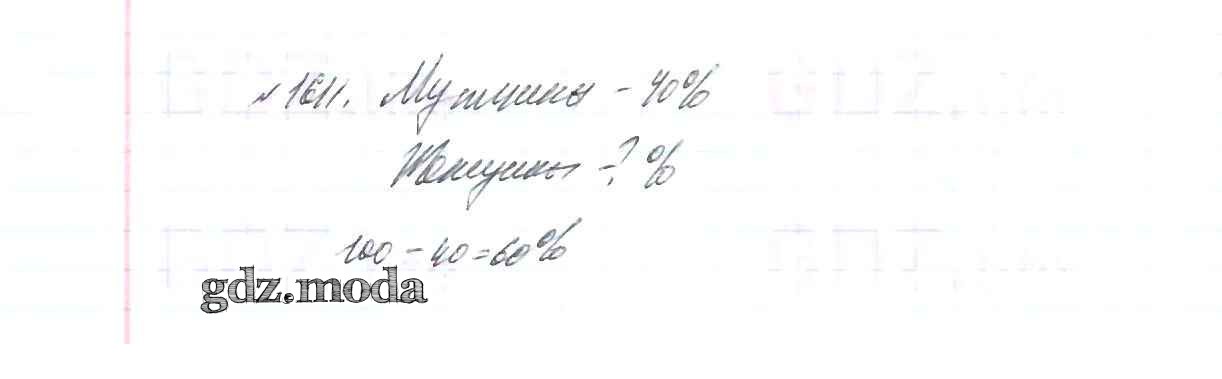 №1611. Мужчины - 40%
Женщины - ? %
100 - 40 = 60%
gdz.moda